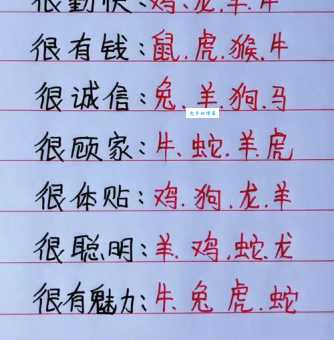 很勤快:鸡.龙.羊.牛
很有钱:鼠.虎.猴.牛
很诚信:兔.羊.狗.马
很顾家:牛.蛇.羊.虎
很体贴:鸡.狗.龙.羊
很聪明:羊.鸡.蛇.龙
很有魅力:牛.兔.虎.蛇